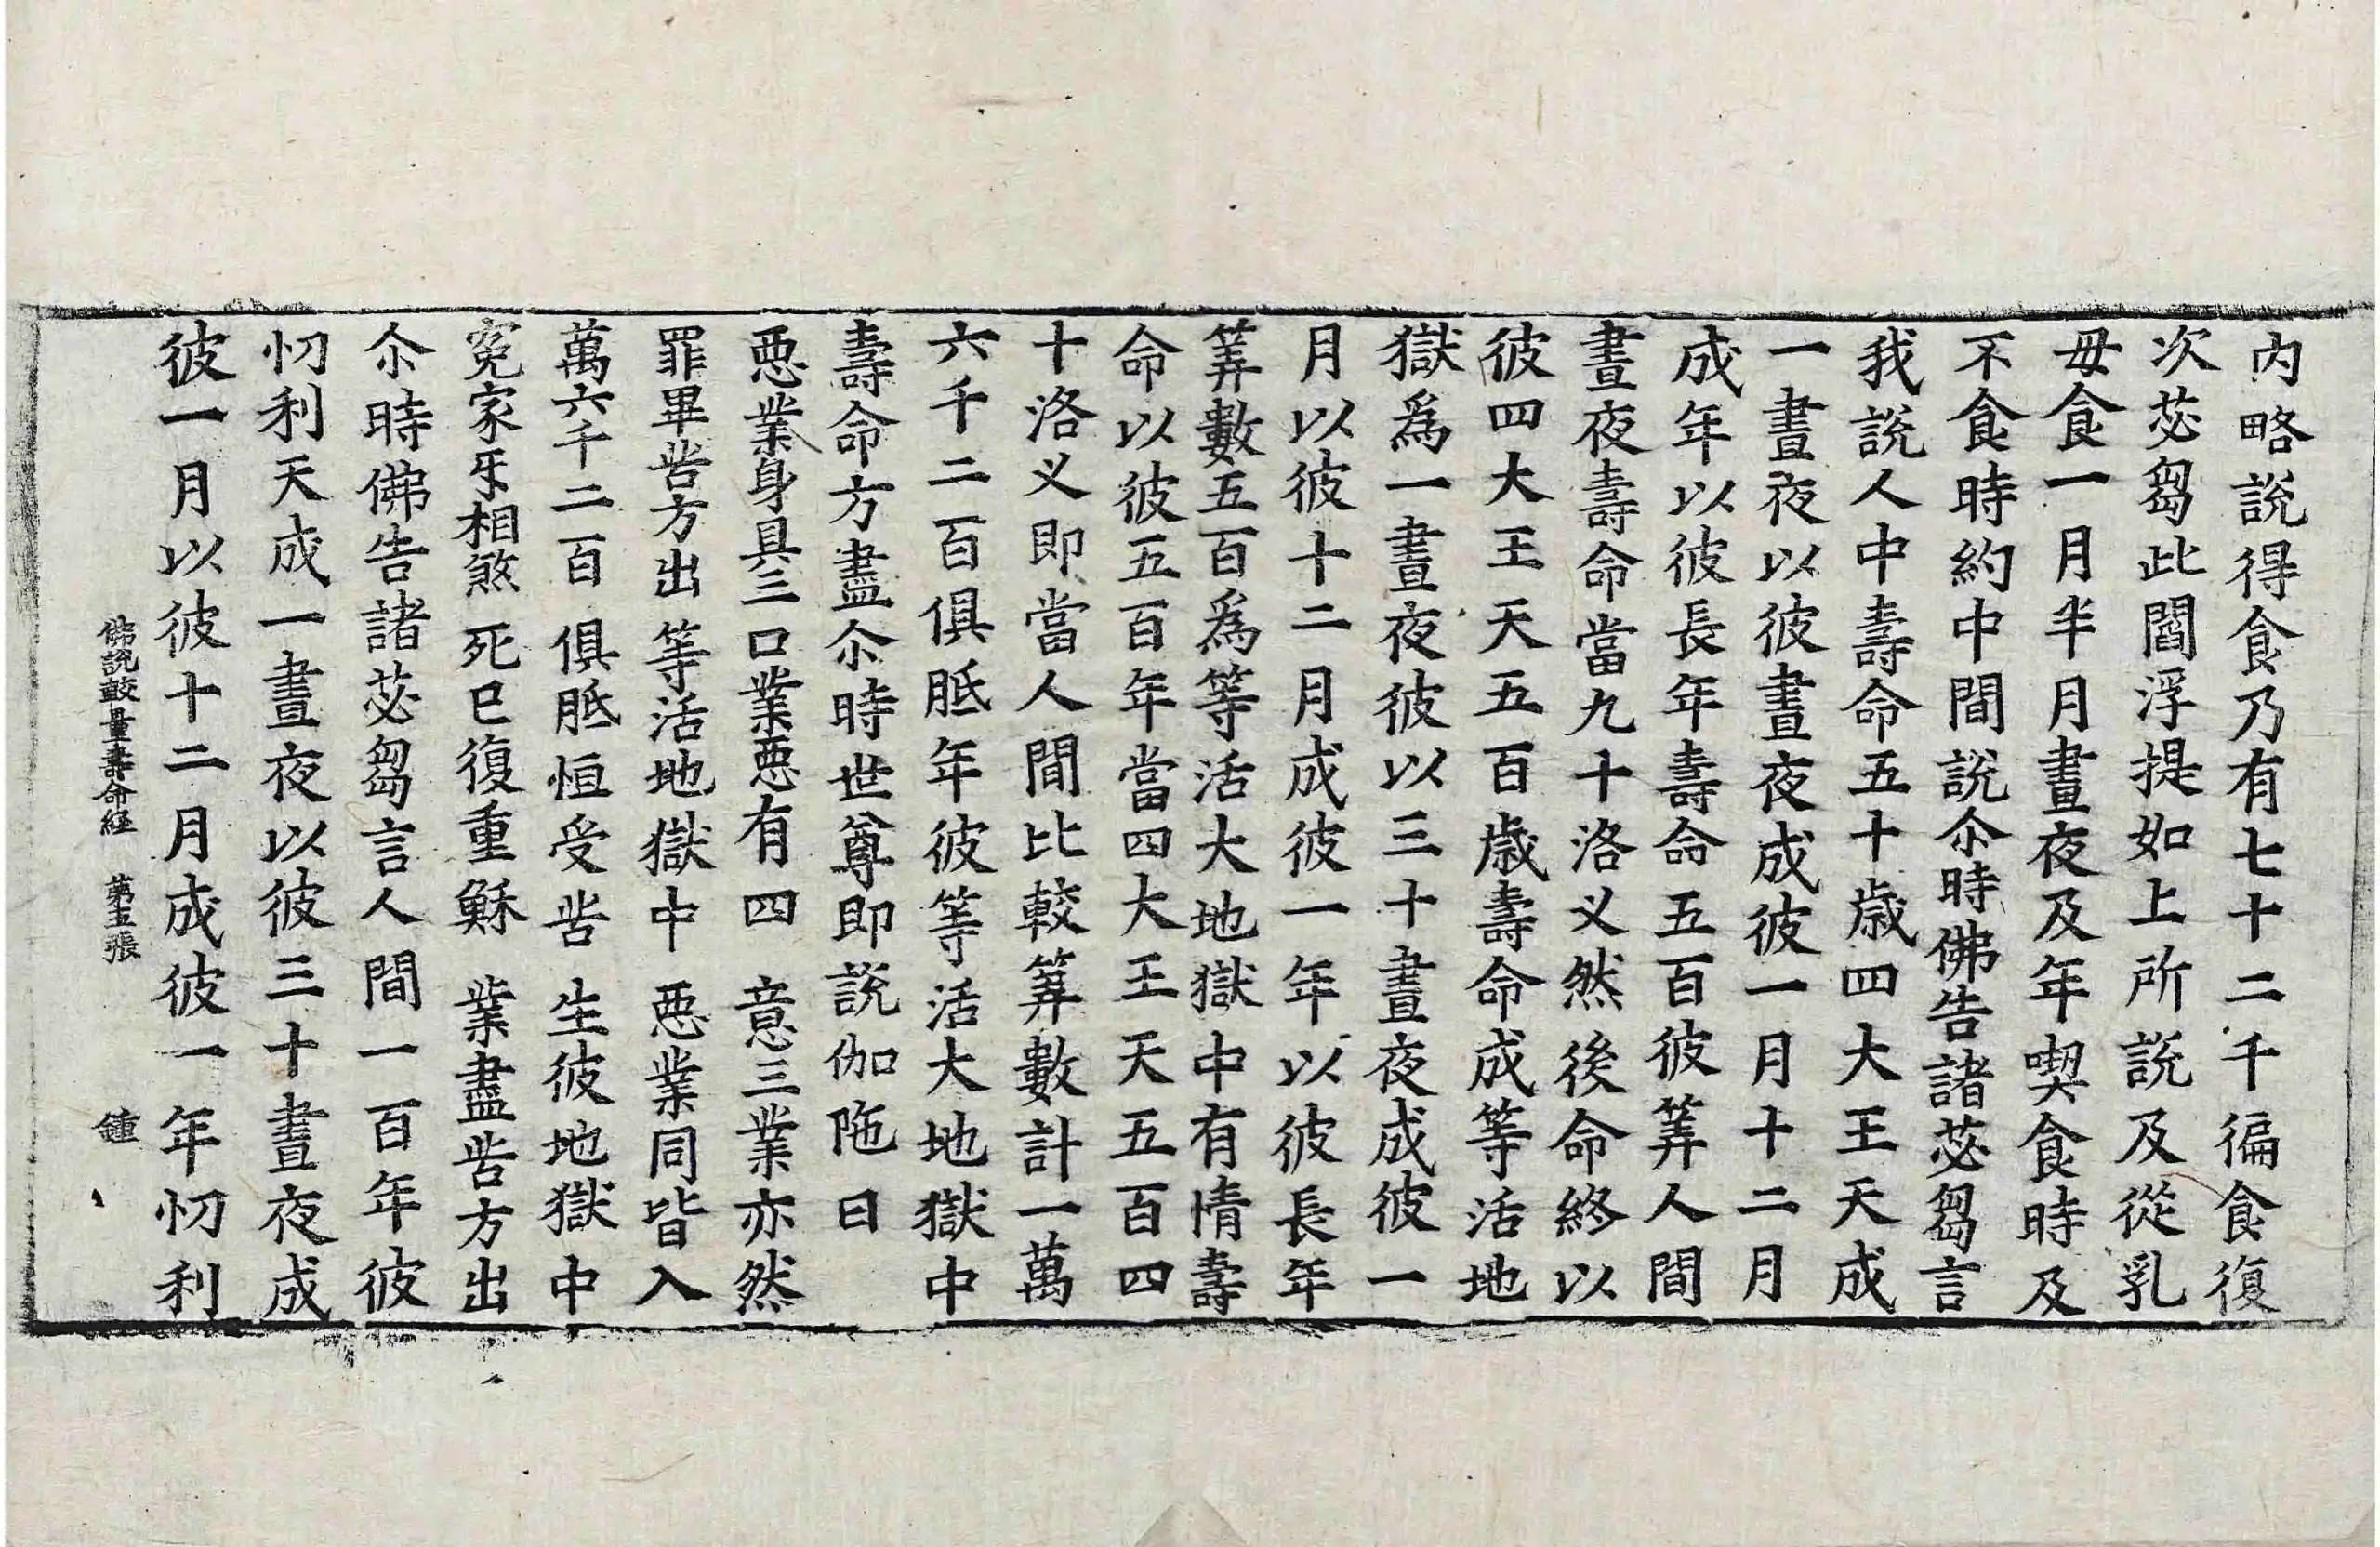 內略說得食乃有七十二千徧食復
次苾芻此閻浮提如上所說及從乳
母食一月半月晝夜及年喫食時及
不食時約中間說尒時佛告諸苾芻言
我說人中壽命五十歲四大王天成
一晝夜以彼晝夜成彼一月十二月
成年以彼長年壽命五百彼筭人間
晝夜壽命當九十洛义然後命終以
彼四大王天五百歲壽命成等活地
獄爲一晝夜彼以三十晝夜成彼一
月以彼十二月成彼一年以彼長年
筭數五百爲等活大地獄中有情壽
命以彼五百年當四大王天五百四
十洛义即當人間比較筭數計一萬
六千二百俱胝年彼等活大地獄中
壽命方盡尒時世尊即說伽陁曰
惡業身具三 口業惡有四 意三業亦然
罪畢苦方出 等活地獄中 惡業同皆入
萬六千二百 俱胝恒受苦 生彼地獄中
寃家牙相煞 死已復重穌 業盡苦方出
尒時佛告諸苾芻言人間一百年彼
忉利天成一晝夜以彼三十晝夜成
彼一月以彼十二月成彼一年忉利
佛說較量壽命經 第五張 鍾